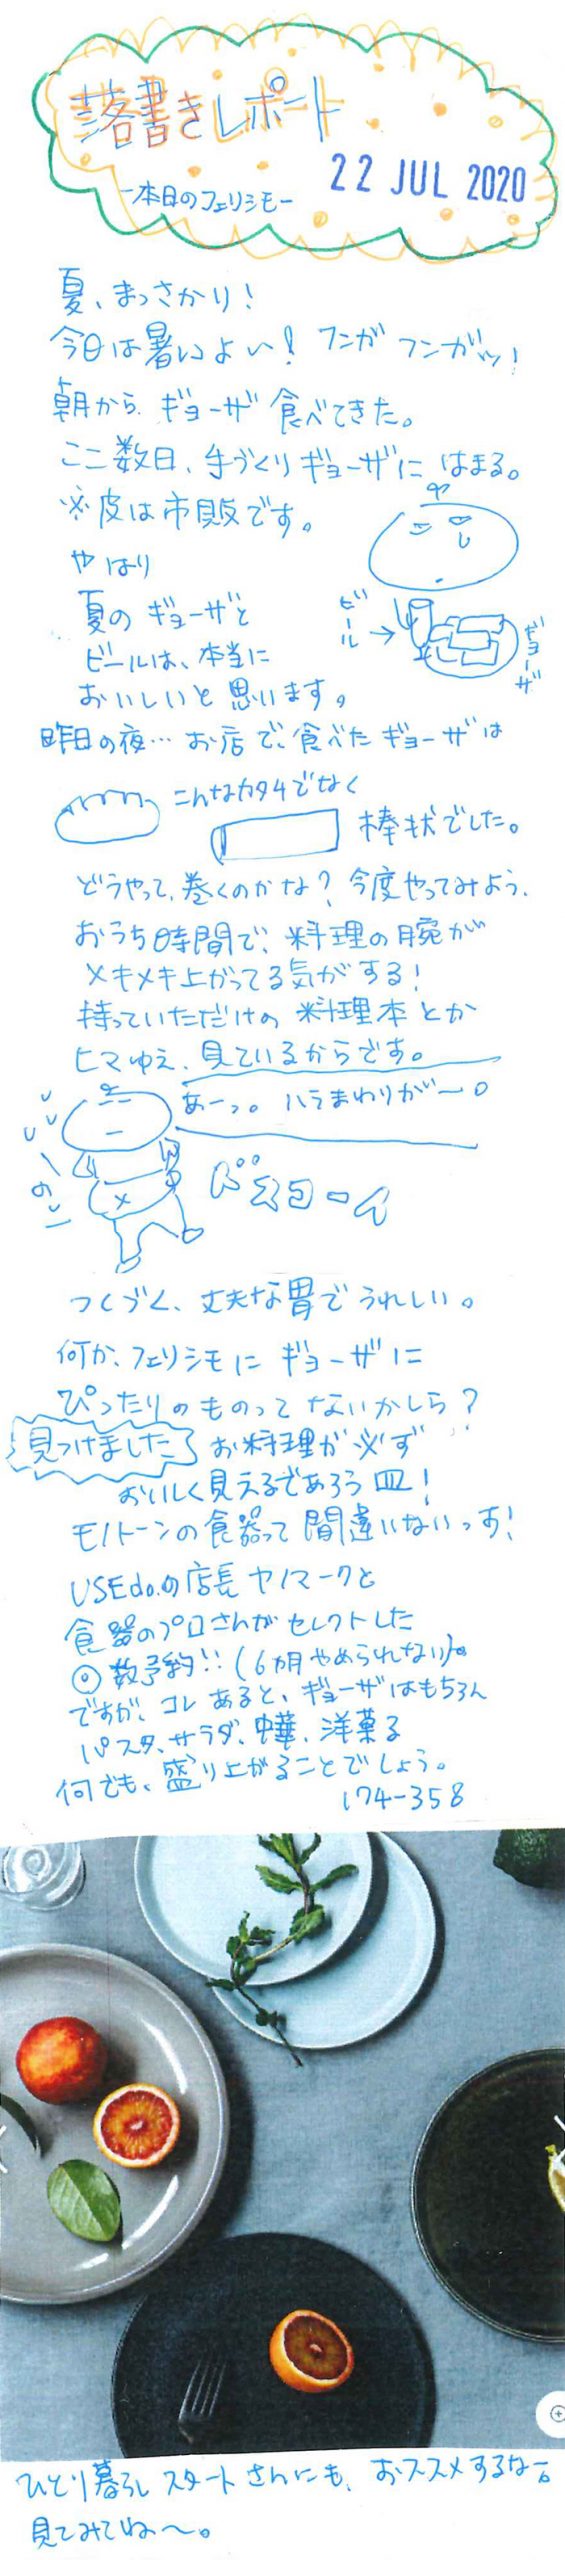 落書きレポート
22 JUL 2020
-本日のフェリシモ-
夏、まっさかり!
今日は暑いよい! フンガ フンガッ!
朝から ギョーザ 食べてきた。
ここ数日、手づくりギョーザに はまる。
※皮は市販です。
やはり
夏の ギョーザと
ビールは、本当に
おいしいと思います。
ビール→
ギョーザ
昨日の夜… お店で、食べたギョーザは
こんなカタチでなく
棒状でした。
どうやって、巻くのかな? 今度やってみよう、
おうち時間で、料理の腕が
メキメキ上がってる気がする!
持っていただけの 料理本とか
ヒマゆえ、見ているからです。
あーっ。ハラまわりが〜。
ドスコーイ
つくづく、丈夫な胃で うれしい。
何か、フェリシモに ギョーザに
ぴったりのものって ないかしら?
見つけました お料理が 必ず
おいしく見えるであろう 皿!
モノトーンの食器って 間違いないっす!
USEdo.の店長 ヤノマークと
食器のプロさんが セレクトした
◎数予約!! (6ヵ月やめられない)。
ですが、コレ あると、ギョーザはもちろん
パスタ、サラダ、中華、洋菓子
何でも、盛り上がることでしょう。
174-358
ひとり暮らし スタートさんにも、おススメするな〜。
見てみてね〜。